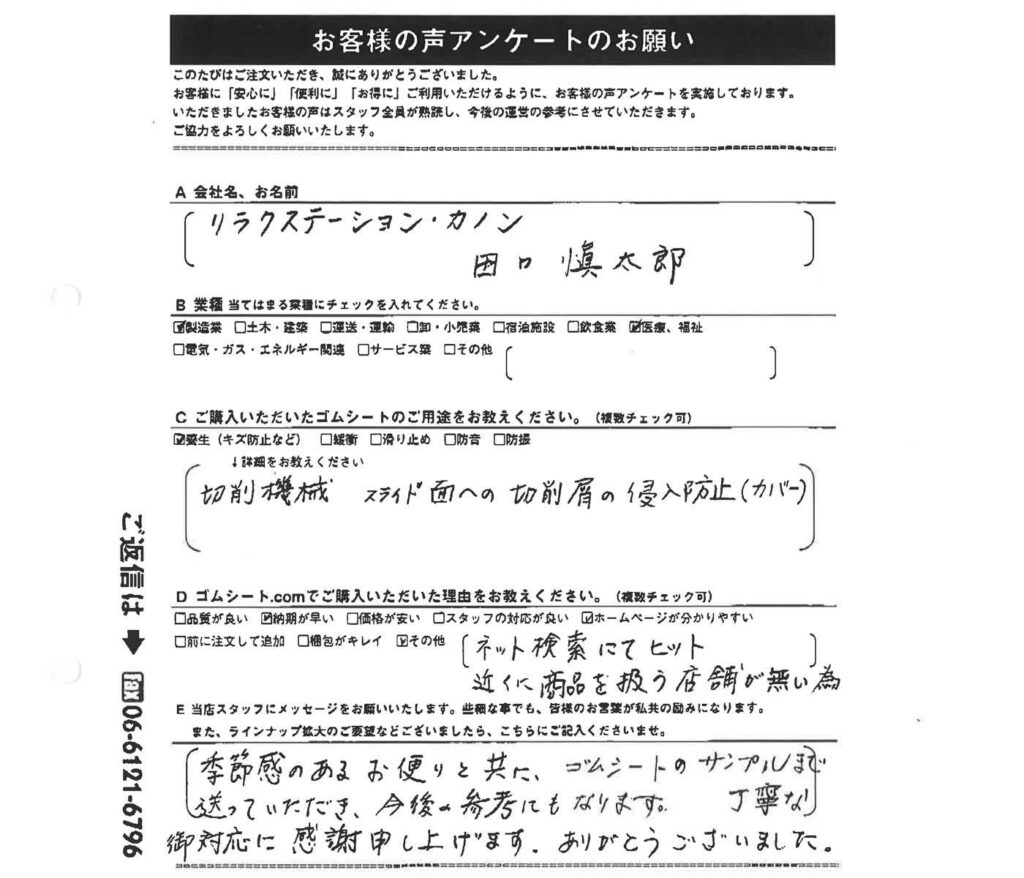 お客様の声アンケートのお願い
このたびはご注文いただき、誠にありがとうございました。
お客様に「安心に」「便利に」「お得に」ご利用いただけるように、お客様の声アンケートを実施しております。
いただきましたお客様の声はスタッフ全員が熟読し、今後の運営の参考にさせていただきます。
ご協力をよろしくお願いいたします。
A 会社名、お名前
リラクステーション・カノン
田口 慎太郎
B 業種 当てはまる業種にチェックを入れてください。
☑製造業 □土木・建築 □運送・運輸 □卸・小売業 □宿泊施設 □飲食業 ☑医療、福祉
□電気・ガス・エネルギー関連 □サービス業 □その他
C ご購入いただいたゴムシートのご用途をお教えください。(複数チェック可)
☑養生(キズ防止など) □緩衝 □滑り止め □防音 □防振
↓詳細をお教えください
切削機械 スライド面への切削屑の侵入防止(カバー)
D ゴムシート.comでご購入いただいた理由をお教えください。(複数チェック可)
□品質が良い ☑納期が早い □価格が安い □スタッフの対応が良い ☑ホームページが分かりやすい
□前に注文して追加 □梱包がキレイ ☑その他
ネット検索にてヒット
近くに商品を扱う店舗が無い為
E 当店スタッフにメッセージをお願いいたします。些細な事でも、皆様のお言葉が私共の励みになります。
また、ラインナップ拡大のご要望などございましたら、こちらにご記入くださいませ。
季節感のあるお便りと共に、ゴムシートのサンプルまで
送っていただき、今後の参考にもなります。 丁寧な
御対応に感謝申し上げます。ありがとうございました。
ご返信は➡fax06-6121-6796